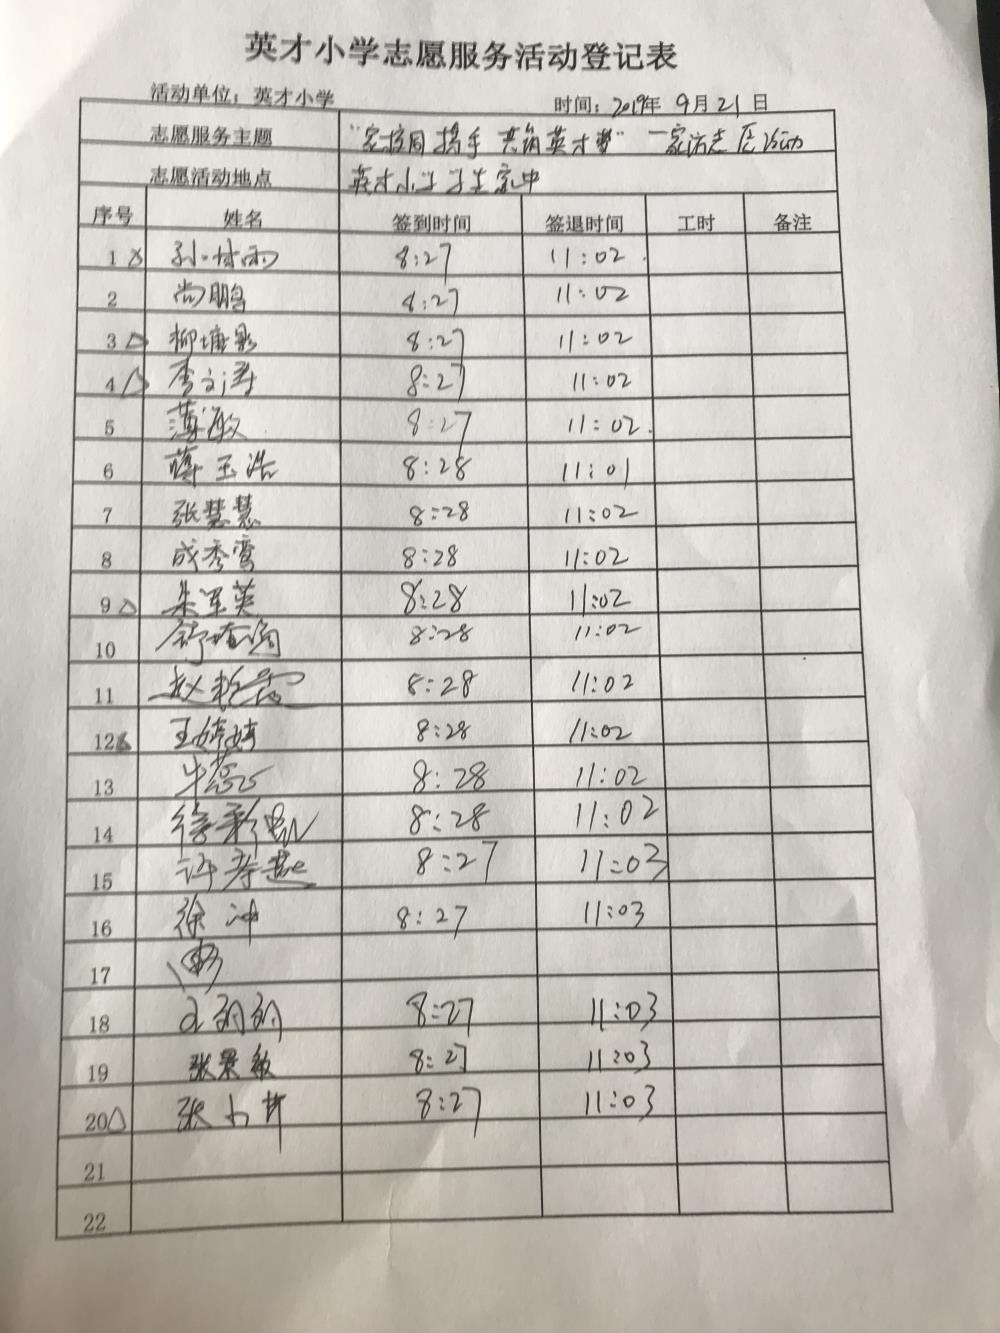 英才小学志愿服务活动登记表
活动单位：英才小学 时间：2019年 9月21日
志愿服务主题 "家校同携手 共筑英才梦" 一家访志愿活动
志愿活动地点 英才小学学生家中
序号 姓名 签到时间 签退时间 工时 备注
1 8:27 11:02
2 尚鹏 8:27 11:02
3 8:27 11:02
4 李文涛 8:27 11:02
5 薄敏 8:27 11:02
6 蒋玉浩 8:28 11:01
7 张慧慧 8:28 11:02
8 成秀鸾 8:28 11:02
9 朱军英 8:28 11:02
10 8:28 11:02
11 赵 8:28 11:02
12 王婷婷 8:28 11:02
13 牛蕊 8:28 11:02
14 徐彩 8:28 11:02
15 许孝 8:27 11:03
16 徐冲 8:27 11:03
17
18 8:27 11:03
19 张景敏 8:27 11:03
20 张 8:27 11:03
21
22